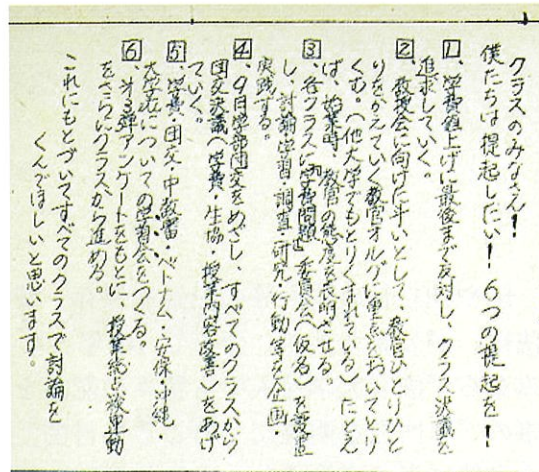 クラスのみなさん!
僕たちは提起したい! 6つの提起を!
1、学費値上げに最後まで反対し、クラス決議を
追求していく。
2、教授会に向けた斗いとして、教官ひとりひと
りをかえていく教官オルグに重点をおいてとり
くむ。(他大学でもとりくまれている)たとえ
ば、始業時、教官の態度を表明させる。
3、各クラスに『学費問題』委員会(仮名)を設置
し、討論・学習・調査・研究・行動等を企画・
実践する。
4、9日学部団交をめざし、すべてのクラスから
団交決議(学費・生協・授業内容改善)をあげ
ていく。
5、学費・団交・中教審・ベトナム・安保・沖縄・
についての学習会をつくる。
6、オ3弾アンケートをもとに、授業総点検運動
をさらにクラスから進める。
これにもとづいてすべてのクラスで討論を
くんでほしいと思います。